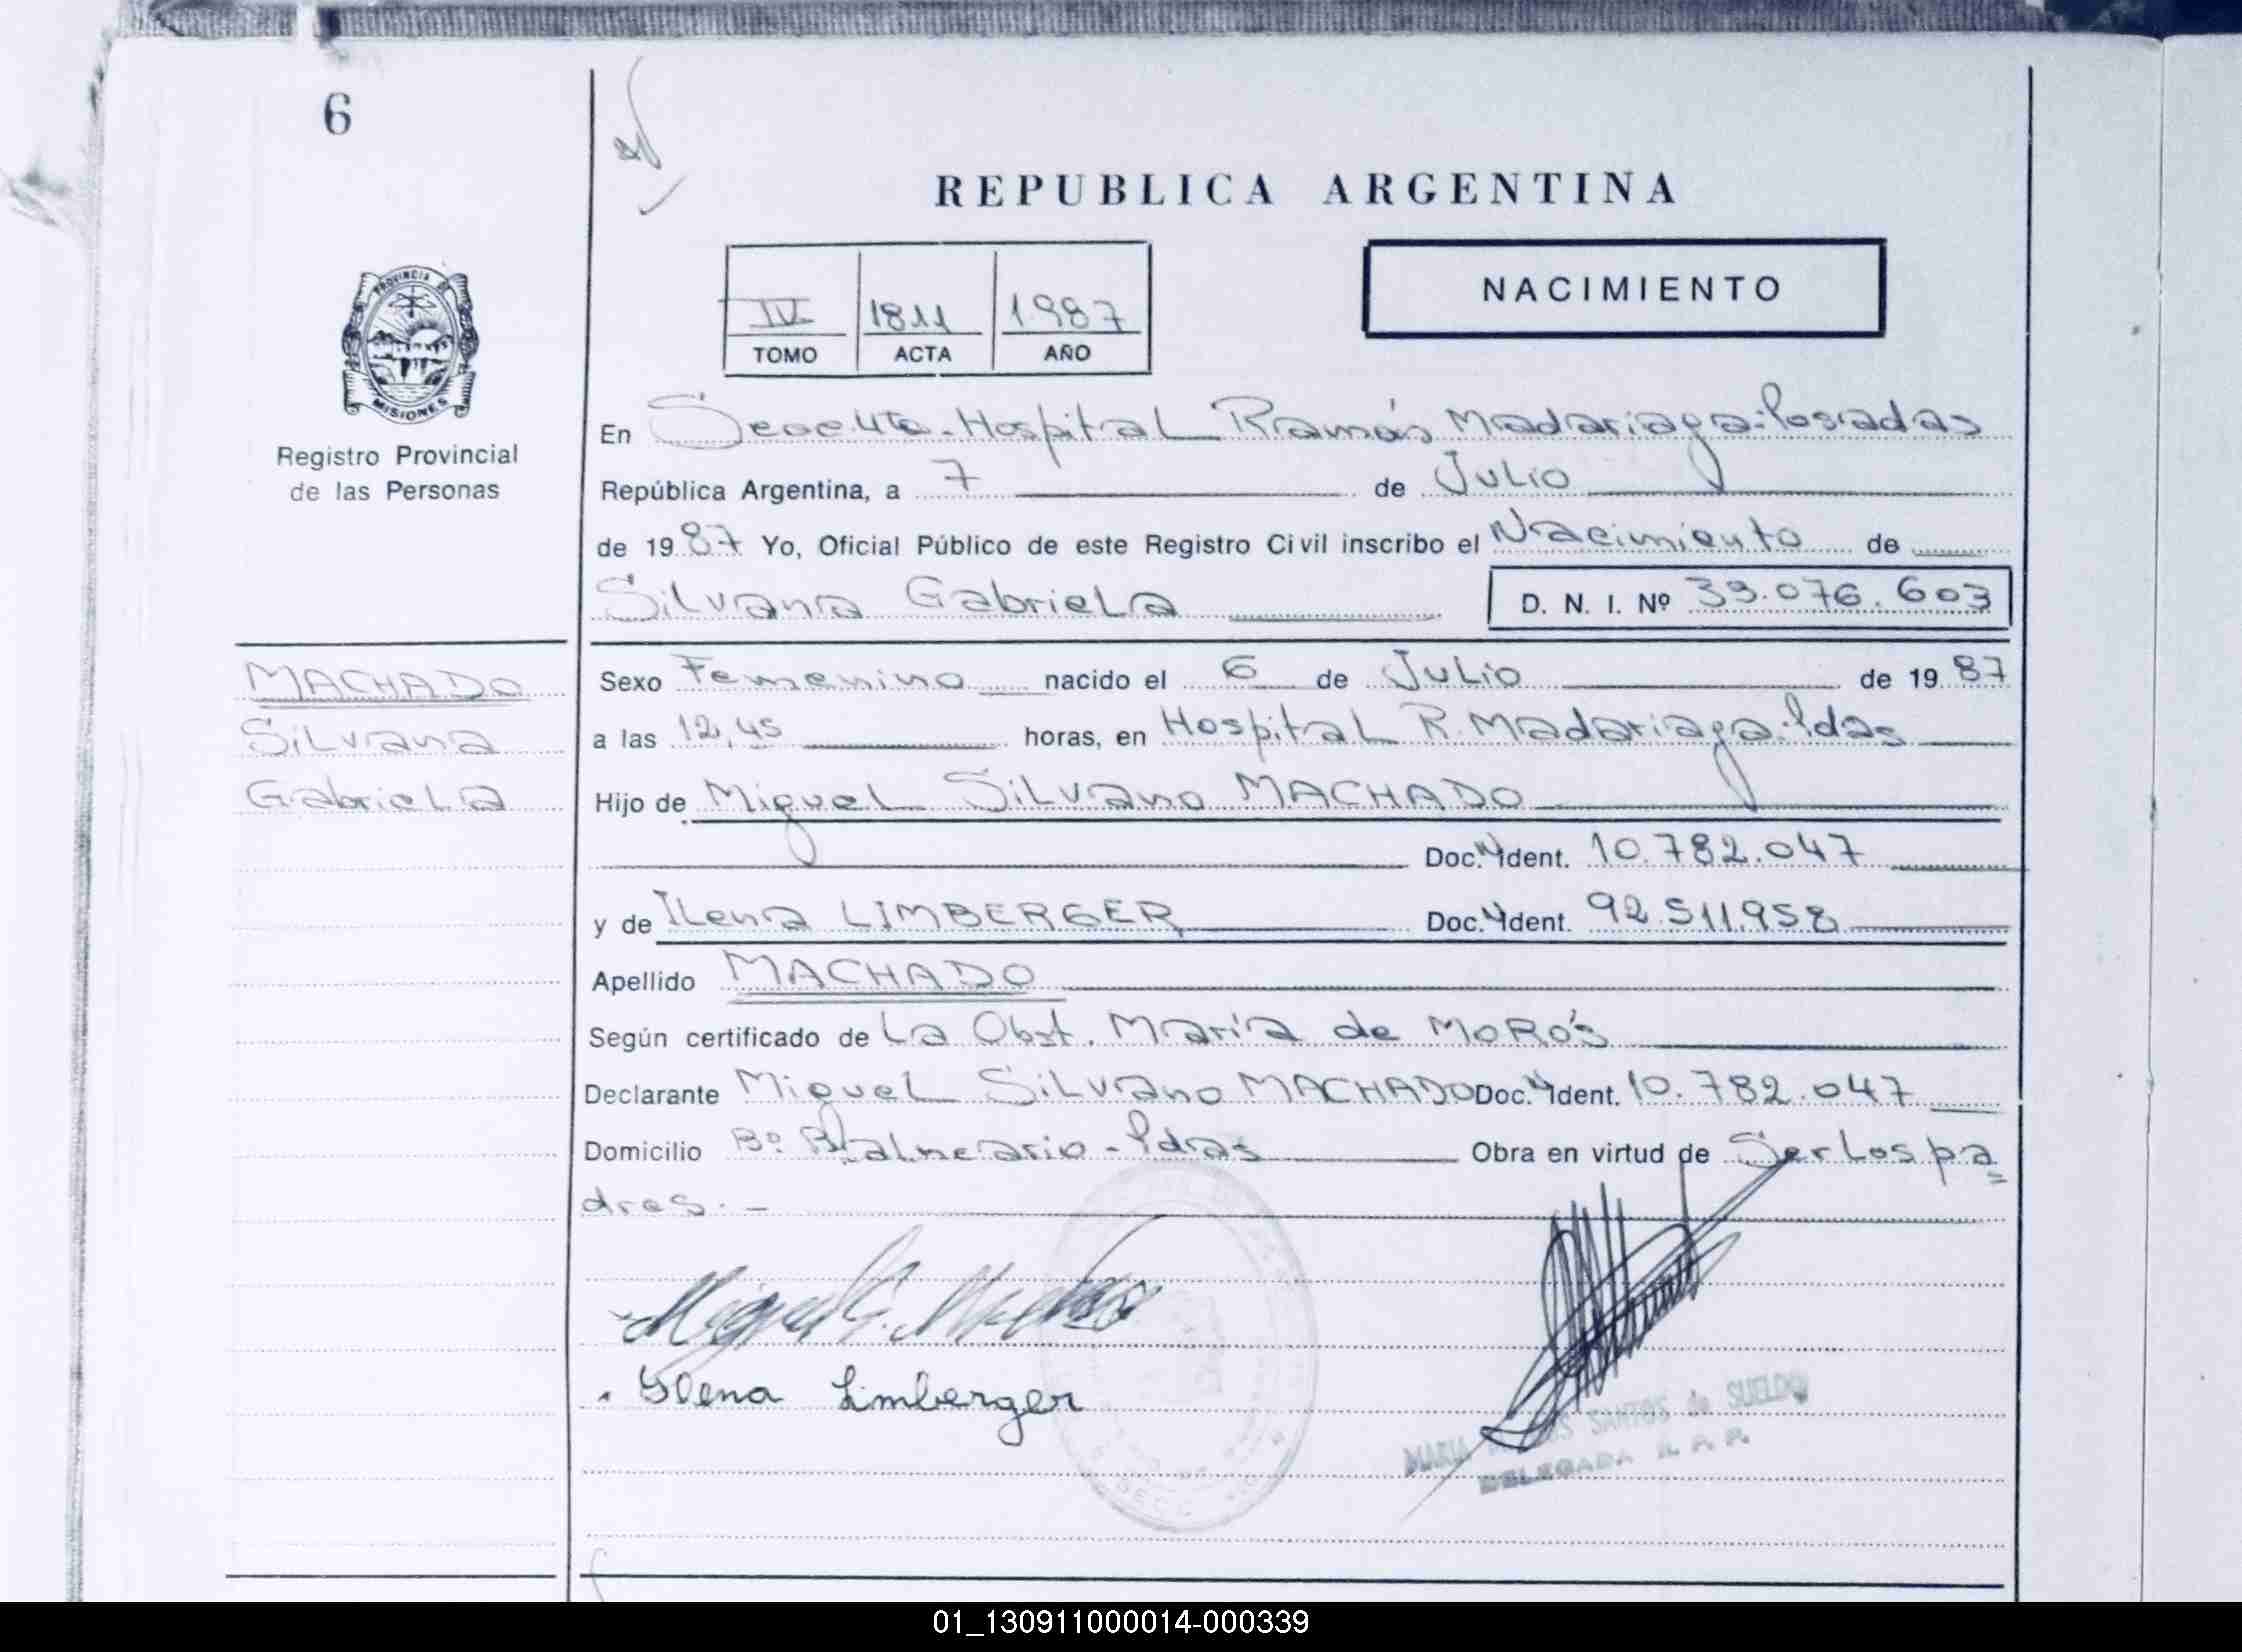 6
REPUBLICA ARGENTINA
NACIMIENTO
IV 1811 1987
TOMO ACTA AÑO
PROVINCIA DE
MISIONES
Registro Provincial
de las Personas
En Hospital Ramón Madariaga-Posadas
República Argentina, a 7 de Julio
de 1987 Yo, Oficial Público de este Registro Civil inscribo el Nacimiento de
Silvana Gabriela D. N. I. Nº 33.076.603
MACHADO
Silvana
Gabriela
Sexo Femenino nacido el 6 de Julio de 1987
a las 12,45 horas, en Hospital R. Madariaga-Pdas
Hijo de Miguel Silvano MACHADO
Doc. Ident. 10.782.047
y de Ilena LIMBERGER Doc. Ident. 92.511.958
Apellido MACHADO
Según certificado de La Obst. María de
Declarante Miguel Silvano MACHADO Doc. Ident. 10.782.047
Domicilio Bº Balneario - Pdas Obra en virtud de Ser Los pa
dres. -
Ilena Limberger
MARIA SANTOS de SUELDO
DELEGADA
01_130911000014-000339